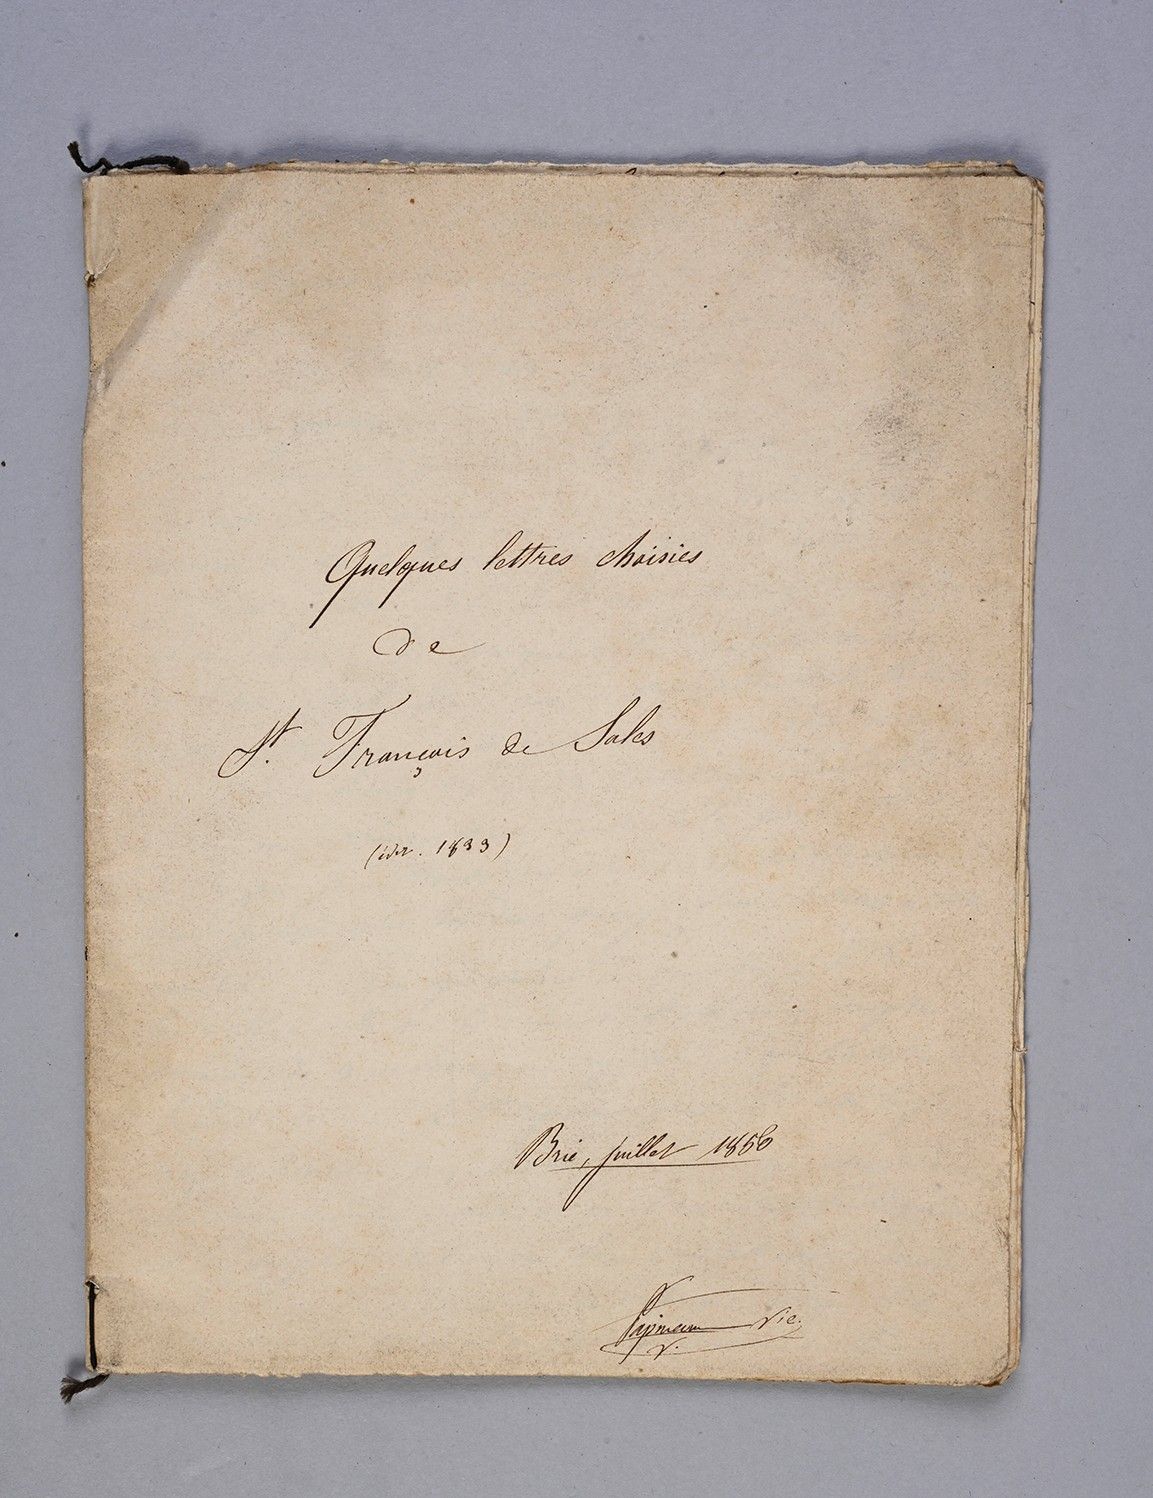 Quelques lettres choisies
de
St. François de Sales
(édit. 1833)
Brie, juillet 1856
Papineau Vic.